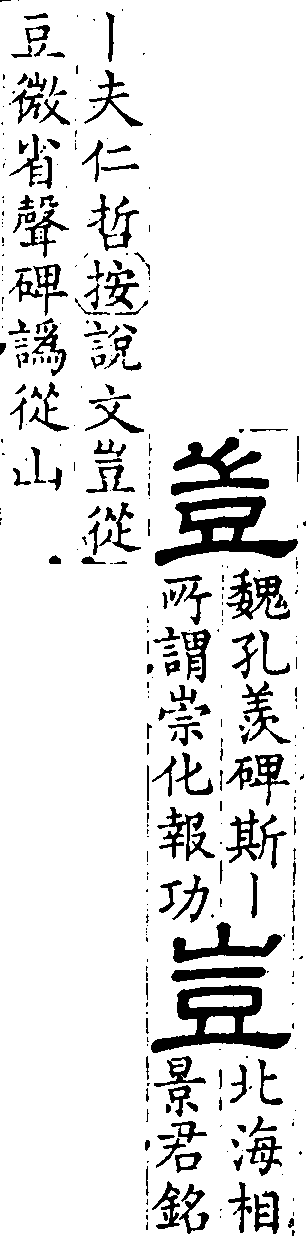 豈
魏孔羨碑斯丨
所謂崇化報功
豈
北海相
景君銘
丨夫仁哲按說文豈從
豆微省聲碑譌從山